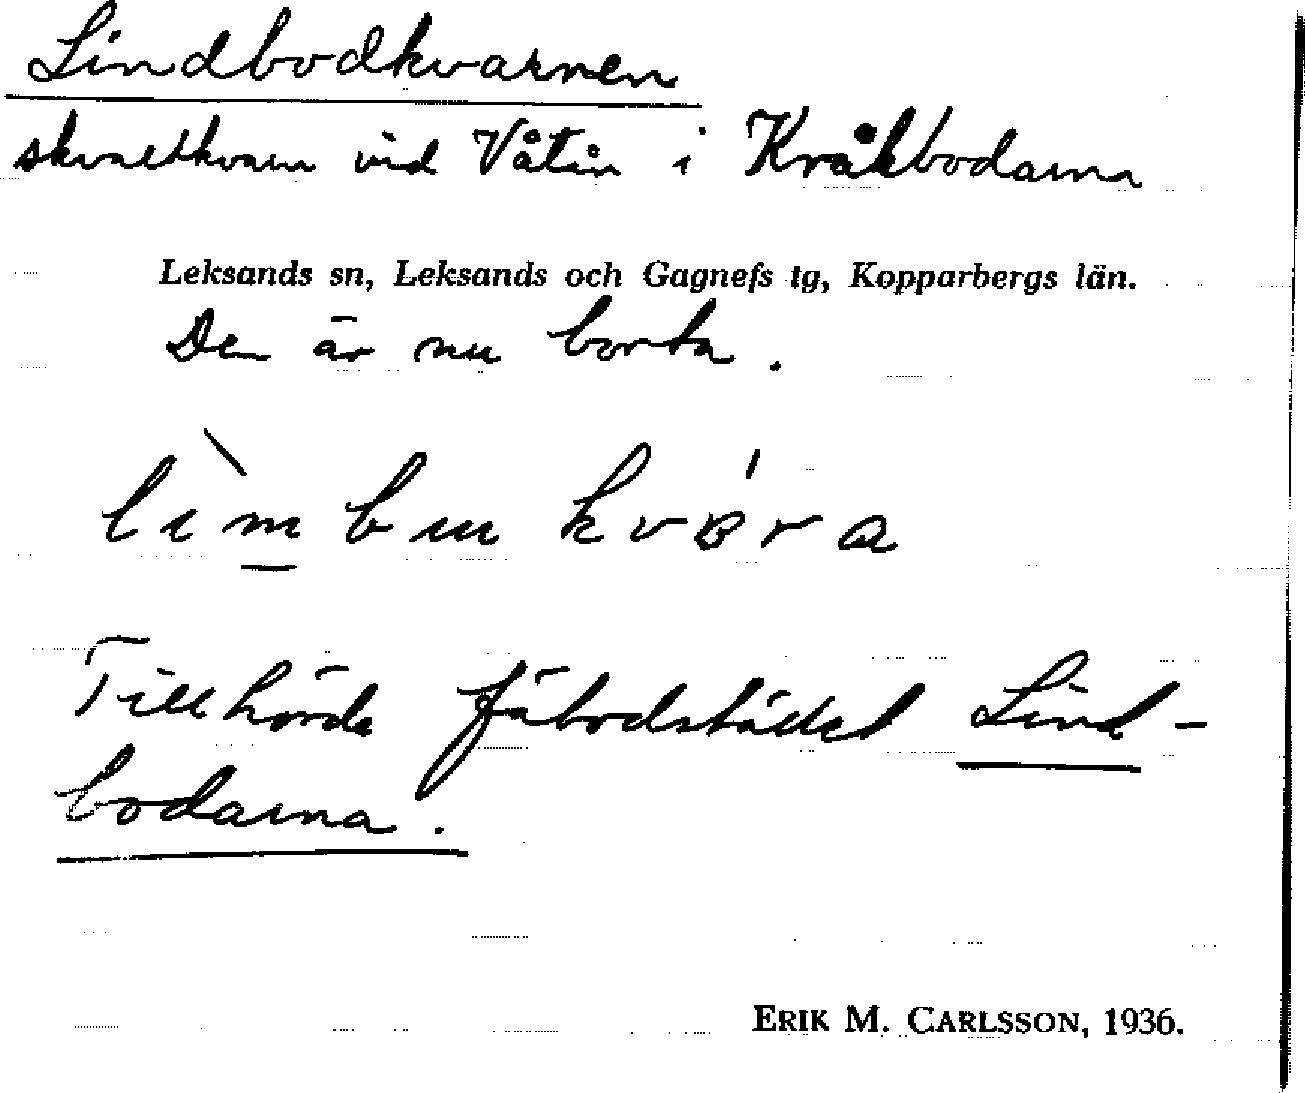 Lindbodkvarnen
skvaltkvarn vid Våtån i Kråkbodarna
Leksands sn, Leksands och Gagnefs tg, Kopparbergs län.
Den är nu borta.
Tillhörde fäbodstället Lind-
bodarna.
ERIK M. CARLSSON, 1936.